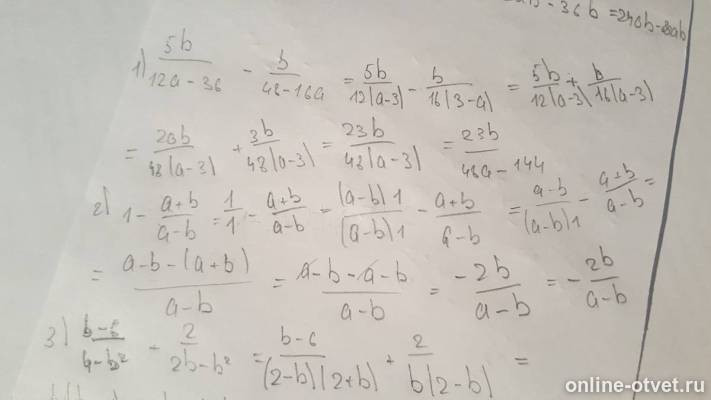 - 36b = 240b - 
1) 5b/(12a-36) - b/(48-16a) = 5b/(12(a-3)) - b/(16(3-a)) = 5b/(12(a-3)) + b/(16(a-3))
= 20b/(48(a-3)) + 3b/(48(a-3)) = 23b/(48(a-3)) = 23b/(48a-144)
2) 1 - (a+b)/(a-b) = 1/1 - (a+b)/(a-b) = (a-b)1/((a-b)1) - (a+b)/(a-b) = (a-b)/((a-b)1) - (a+b)/(a-b) =
= (a-b-(a+b))/(a-b) = (a-b-a-b)/(a-b) = (-2b)/(a-b) = - 2b/(a-b)
3) (b-6)/(4-b²) + 2/(2b-b²) = (b-6)/((2-b)(2+b)) + 2/(b(2-b)) =
online-otvet.ru